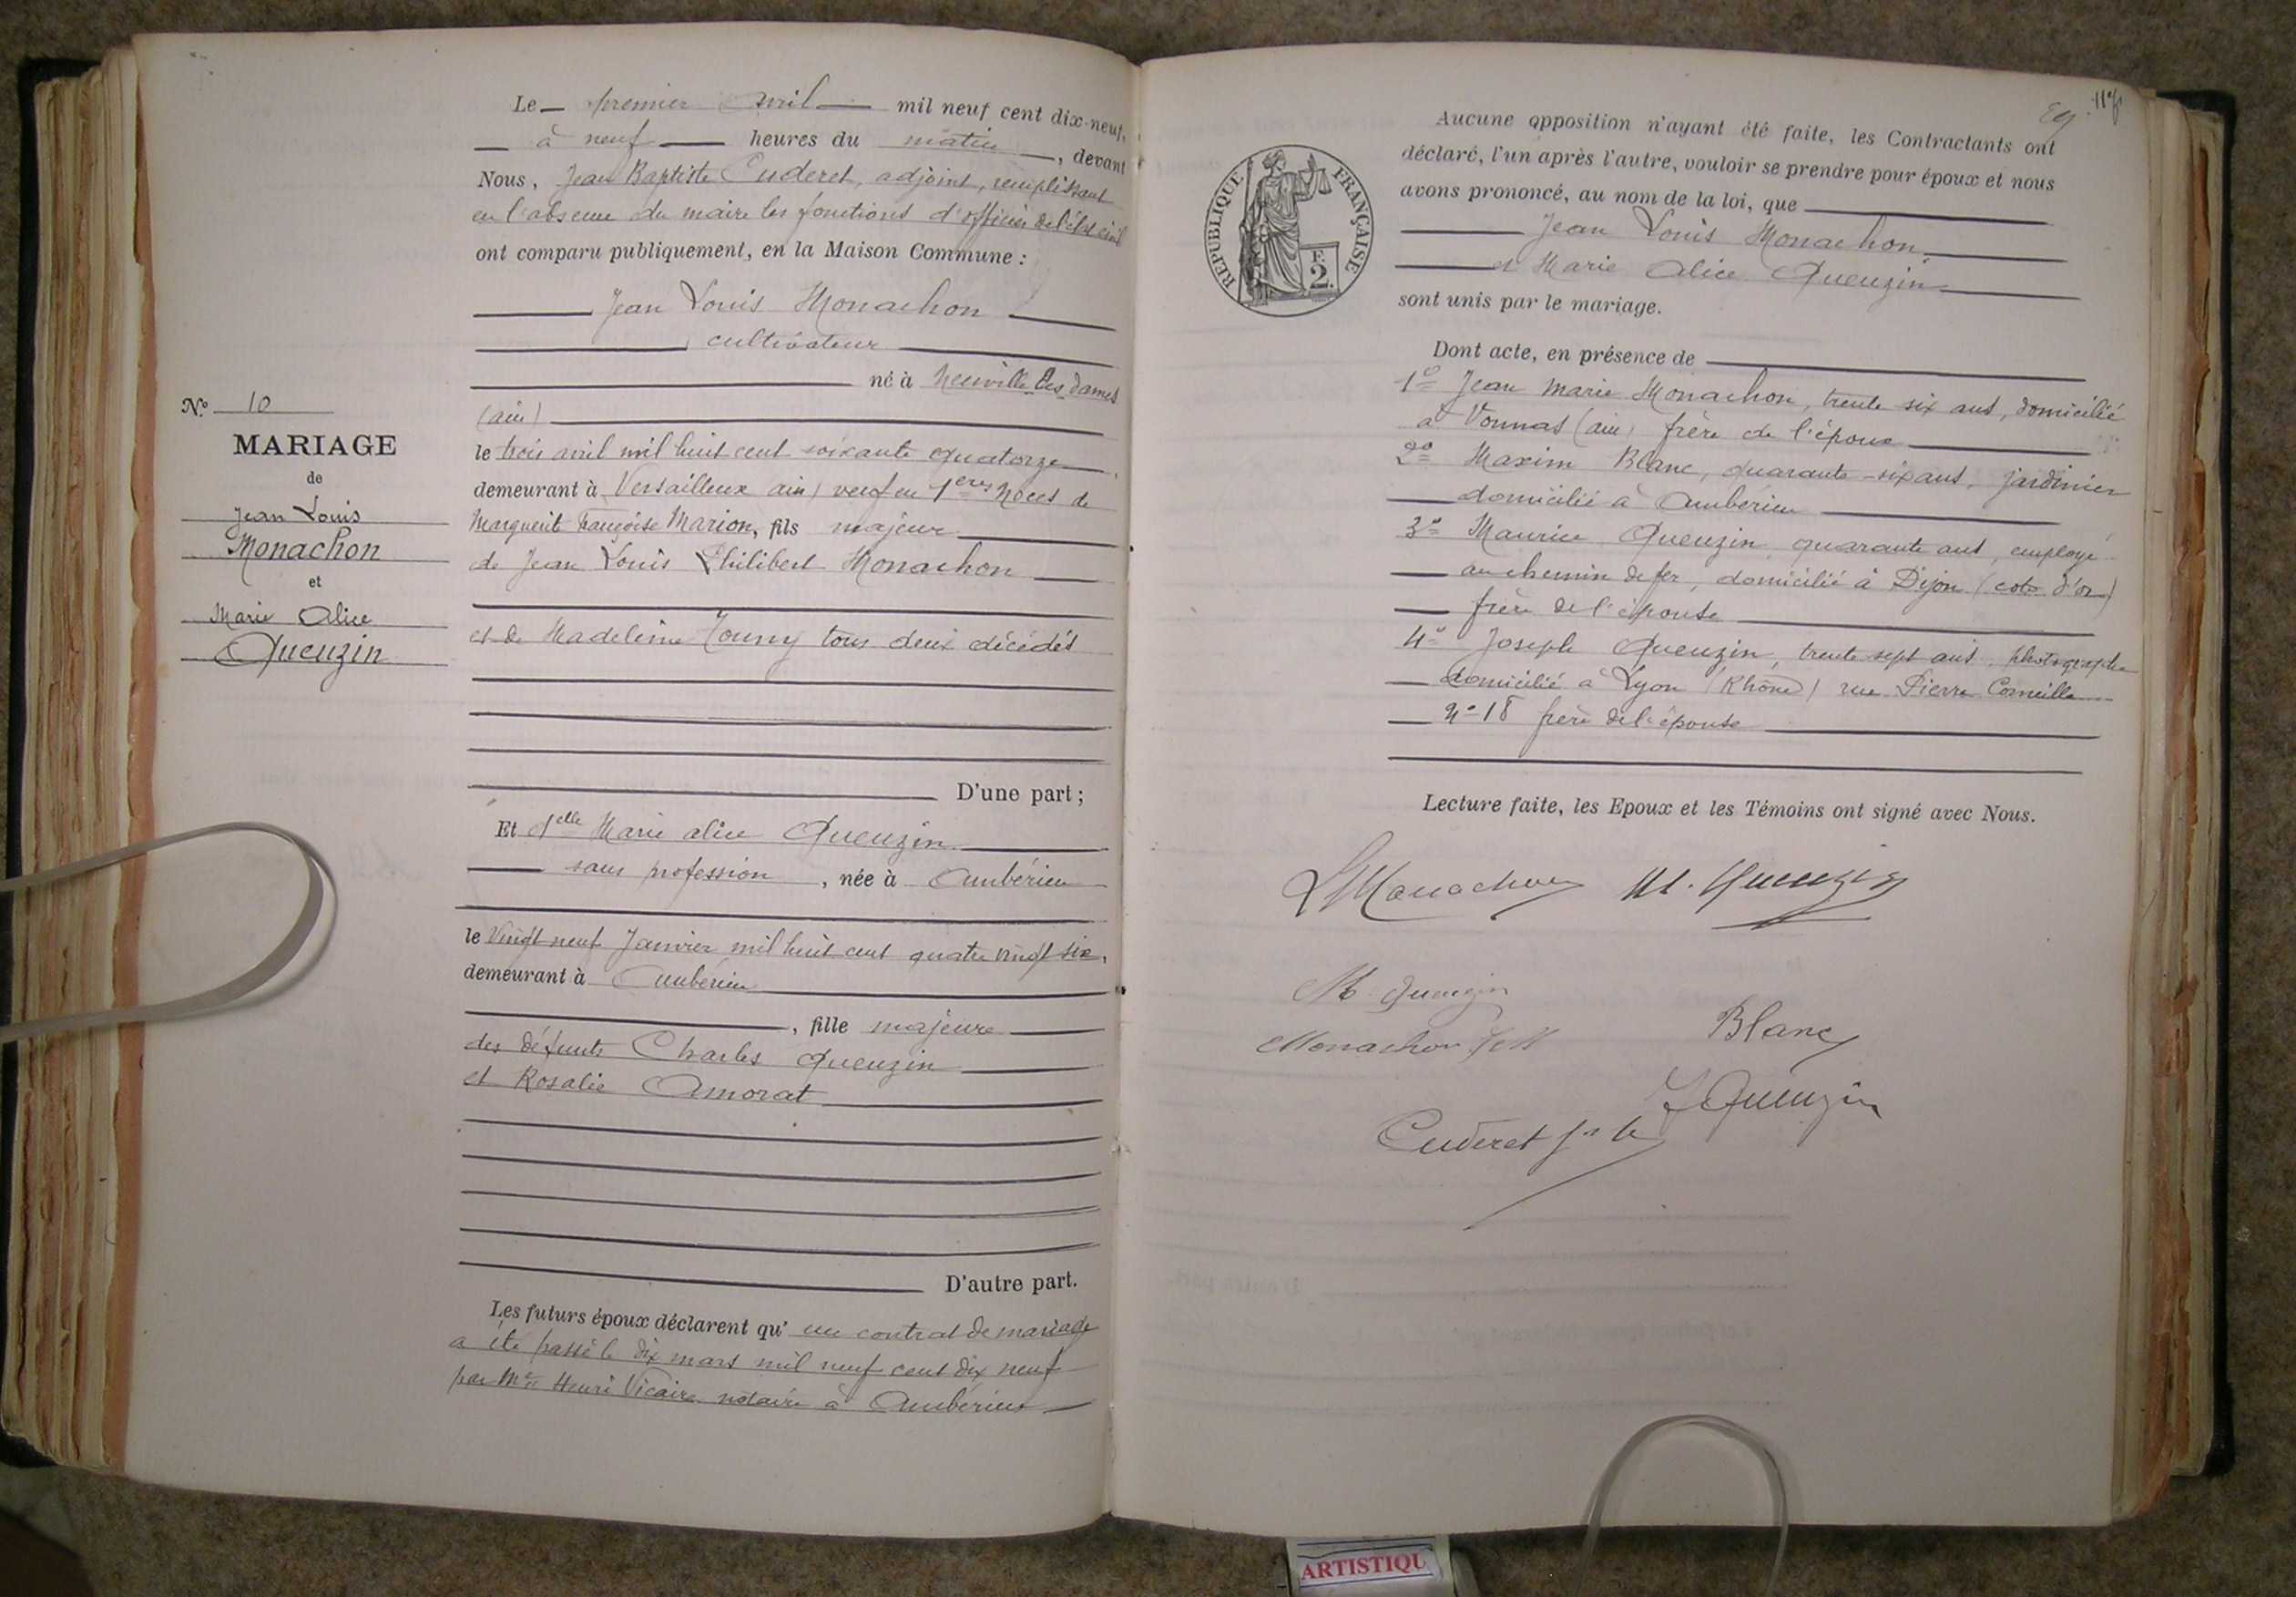 Le premier avril mil neuf cent dix-neuf,
à neuf heures du matin, devant
Nous, Jean Baptiste Cuderet, adjoint, remplissant
en l'absence du maire les fonctions d'officier de l'état civil
ont comparu publiquement, en la Maison Commune :
Jean Louis Monachon
cultivateur
né à Neuville les dames
(ain)
le trois avril mil huit cent soixante quatorze
demeurant à Versailleux (ain) veuf en 1eres noces de
Marguerite Françoise Marion, fils majeur
de Jean Louis Philibert Monachon
et de Madeleine tous deux décédés
D'une part ;
Et delle Marie alice Queuzin
sans profession, née à Ambérieu
le vingt neuf Janvier mil huit cent quatre vingt six,
demeurant à Ambérieu
, fille majeure
des défunts Charles Queuzin
et Rosalie Amorat
D'autre part.
Les futurs époux déclarent qu' un contrat de mariage
a été passé le dix mars mil neuf cent dix neuf
par Me Henri Vicaire notaire à Ambérieu
N.º 10
MARIAGE
de
Jean Louis
Monachon
et
Marie Alice
Queuzin
Aucune opposition n'ayant été faite, les Contractants ont
déclaré, l'un après l'autre, vouloir se prendre pour époux et nous
avons prononcé, au nom de la loi, que
Jean Louis Monachon
et Marie Alice Queuzin
sont unis par le mariage.
Dont acte, en présence de
1º Jean marie Monachon, trente six ans, domicilié
à Vonnas (ain) frère de l'époux
2º Maxim Blanc, quarante-six ans, jardinier
domicilié à Ambérieu
3º Maurice Queuzin quarante ans, employé
au chemin de fer, domicilié à Dijon (cote d'or)
frère de l'épouse
4º Joseph Queuzin, trente sept ans, photographe
domicilié à Lyon (Rhône) rue Pierre Corneille
nº 18 frère de l'épouse
Lecture faite, les Epoux et les Témoins ont signé avec Nous.
L Monachon M. Queuzin
M Queuzin
Blanc
Monachon J M
J Queuzin
Cuderet
REPUBLIQUE FRANÇAISE
F.
2.
ARTISTIQU